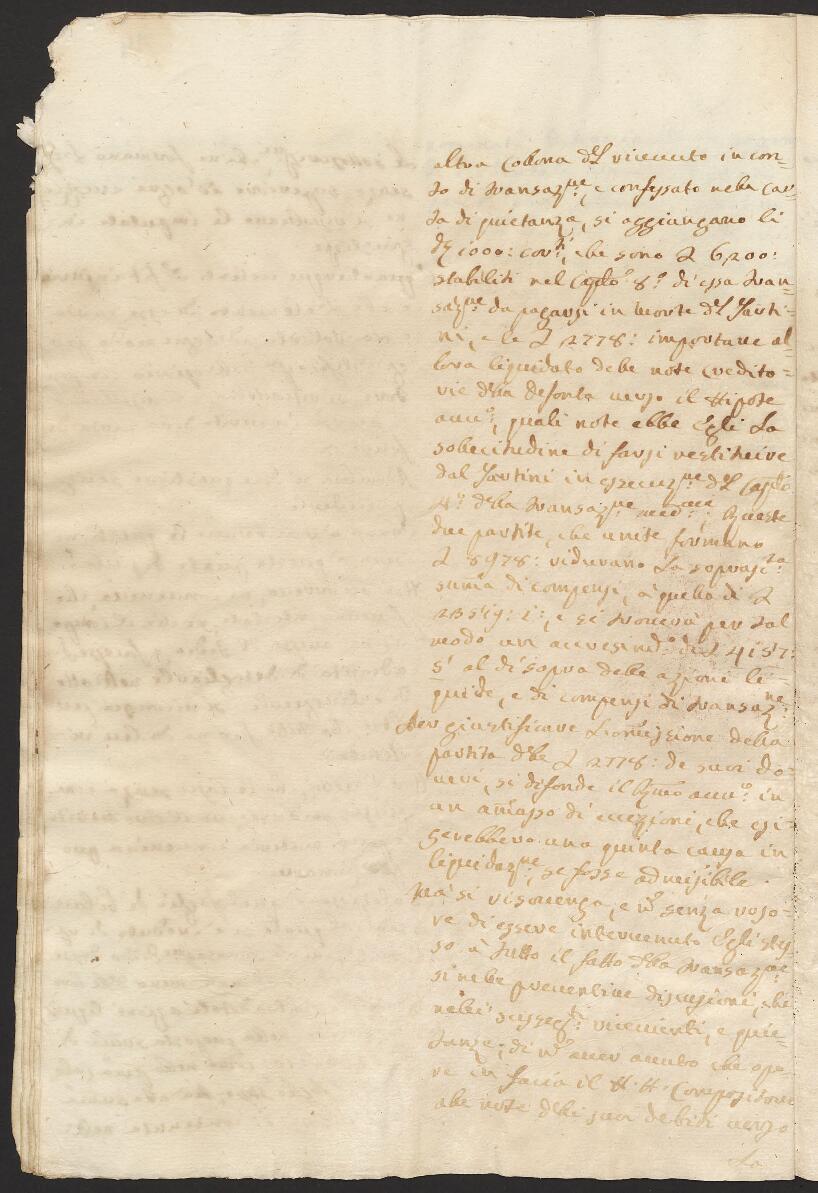 altra Collona del riceuuto in con=
to di transaz.ne, e confessato nella car=
ta di quietanza, si aggiungano li
1000: cor.ti, che sono £ 6200:
stabiliti nel Caplo 8.o di essa tran=
saz.ne da pagarsi in morte del Tarti=
ni, e le £ 2778: importare al=
lora liquidato delle note credito=
rie della defonta uerso il Nipote
auu.o, quali note ebbe Egli La
sollecitudine di farsi restituire
dal Tartini in essecuz.ne del Caplo
4.o della transaz.ne Queste
due partite, che unite formano
£ 8978: riducano La soprasc.ta
suma di compensi, à quella di £
23519: 1:, e si trouerà per tal
modo un di £ 4157:
5 al di sopra delle azioni li=
quide, e di compensi di transaz.ne:
Per giustificare L'omissione della
partita delle £ 2778: de suoi do=
ueri, si difonde il auu.o in
un amasso di eccezioni, che esi=
gerebbero una quinta causa in
liquidaz.ne, se fosse admissibile.
Mà si uisouenga, e senza roso=
re di essere interuenuto Egli stes=
so à tutto il fatto della transaz.ne
si nelle preuentiue discussioni, che
nelli riceuienti, e quie=
tanze; di auer auuto che opo=
re in facia il N. H. Compositore
alle note delli suoi debiti uerso
La